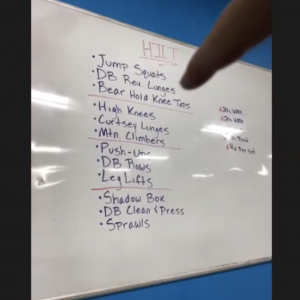 HIIT
• Jump Squats
• DB Rev. Lunges
• Bear Hold Knee Taps
• High Knees
• Curtsey Lunges
• Mtn. Climbers
• Push-Ups
• DB Rows
• Leg Lifts
• Shadow Box
• DB Clean & Press
• Sprawls